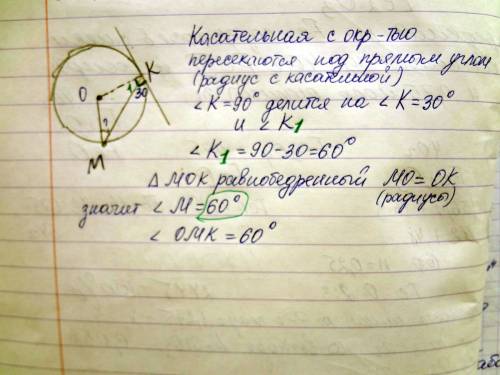 Касательная с окр-тью
пересекаются под прямым углом
(радиус с касательной)
∠K=90° делится на ∠K=30°
и ∠K1
∠K1=90-30=60°
△MOK равнобедренный MO=OK
(радиусы)
значит ∠M=60°
∠OMK=60°
O
1
K
30
?
M